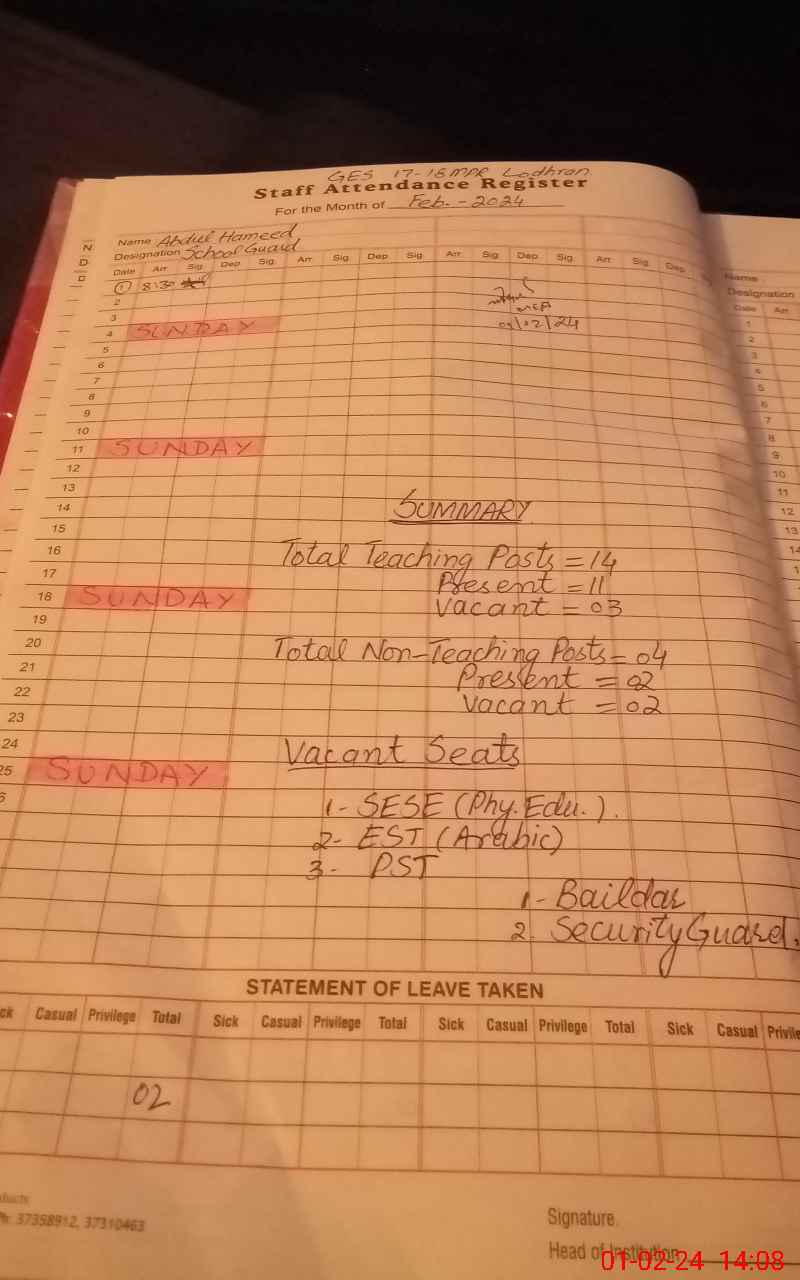 GES 17-18 MPR Lodhran
Staff Attendance Register
For the Month of Feb. - 2024
N
D
D
Name Abdul Hameed
Designation School Guard
Date Arr. Sig. Dep. Sig. Arr. Sig. Dep. Sig. Arr. Sig. Dep. Sig. Arr. Sig. Dep.
1 8:30
2
3
4 SUNDAY
01/02/24
5
6
7
8
9
10
11 SUNDAY
12
13
14 SUMMARY
15
16 Total Teaching Posts = 14
17 Present = 11
18 SUNDAY Vacant = 03
19
20 Total Non-Teaching Posts = 04
21 Present = 02
22 Vacant = 02
23
24 Vacant Seats
25 SUNDAY
1- SESE (Phy. Edu.).
2- EST (Arabic)
3- PST
1- Baildar
2. Security Guard.
STATEMENT OF LEAVE TAKEN
ck Casual Privilege Total Sick Casual Privilege Total Sick Casual Privilege Total Sick Casual Privile
02
ducts
Ph: 37358912, 37310463
Signature.
Head of Institution
Name
Designation
Date Arr
1
2
3
4
5
6
7
8
9
10
11
12
13
14
01-02-24 14:08